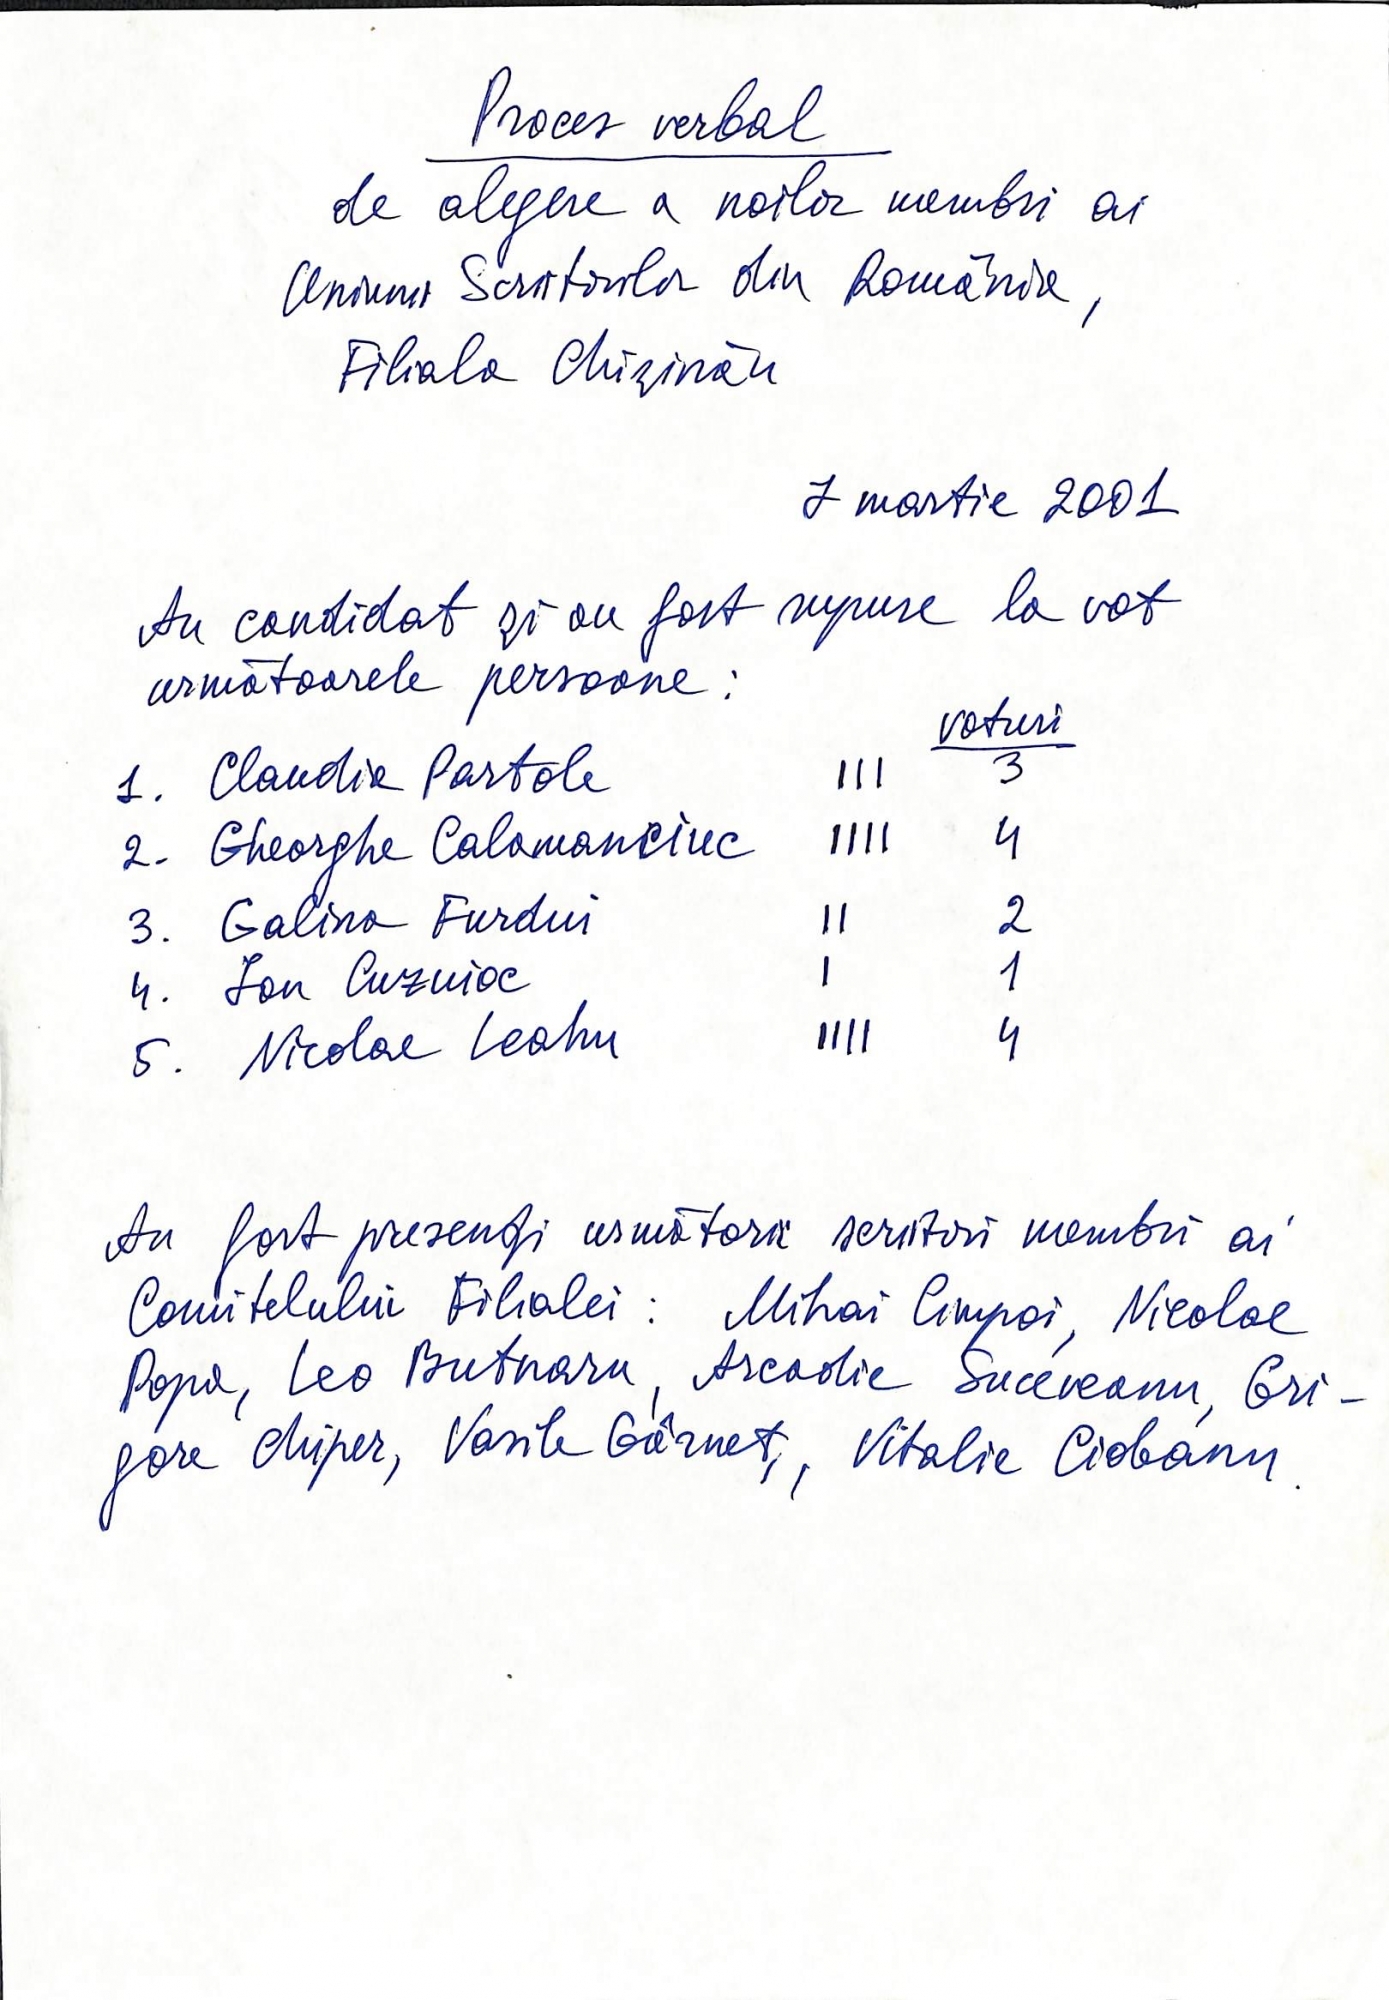 Proces verbal
de alegere a noilor membri ai
Uniunii Scriitorilor din România,
Filiala Chișinău
7 martie 2001
Au candidat și au fost supuse la vot
următoarele persoane:
voturi
1. Claudia Partole III 3
2. Gheorghe Calamanciuc IIII 4
3. Galina Furdui II 2
4. Ion Cuzuioc I 1
5. Nicolae Leahu IIII 4
Au fost prezenți următorii scriitori membri ai
Comitelului Filialei: Mihai Cimpoi, Nicolae
Popa, Leo Butnaru, Arcadie Suceveanu, Gri-
gore Chiper, Vasile Gârneț, Vitalie Ciobanu.